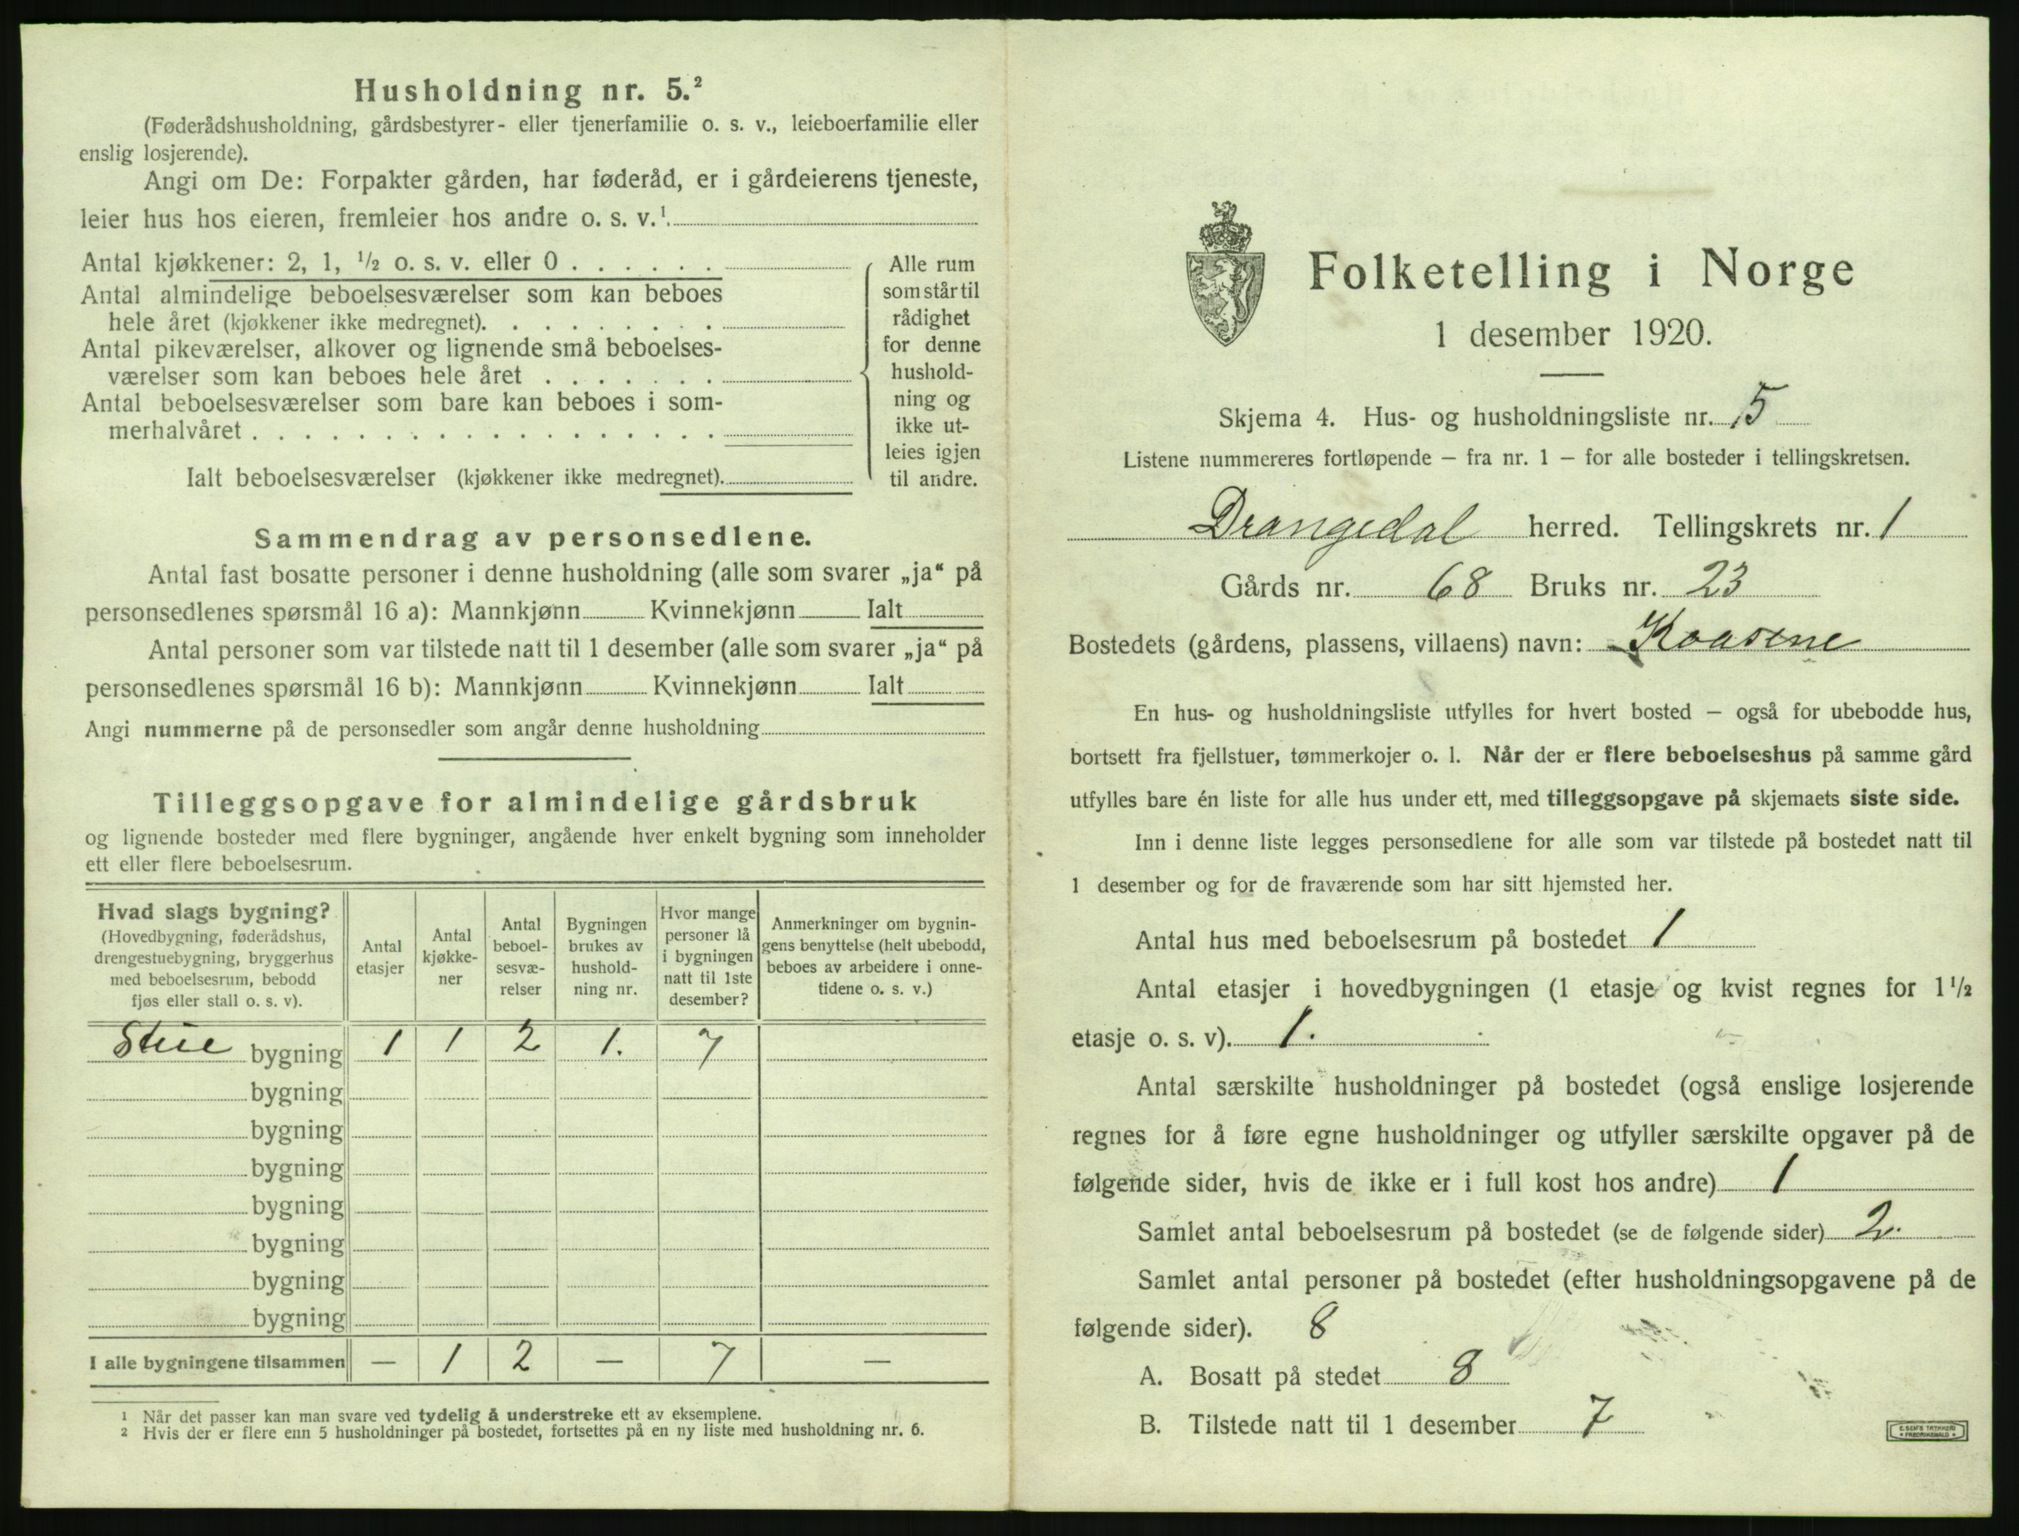 Husholdning nr. 5.²
(Føderådshusholdning, gårdsbestyrer- eller tjenerfamilie o. s. v., leieboerfamilie eller
enslig losjerende).
Angi om De: Forpakter gården, har føderåd, er i gårdeierens tjeneste,
leier hus hos eieren, fremleier hos andre o. s. v.¹.
Antal kjøkkener: 2, 1, ½ o. s. v. eller 0 . . . . . .
Antal almindelige beboelsesværelser som kan beboes
hele året (kjøkkener ikke medregnet). . . . . . . . .
Antal pikeværelser, alkover og lignende små beboelses-
værelser som kan beboes hele året . . . . . . .
Antal beboelsesværelser som bare kan beboes i som-
merhalvåret . . . . . . . . . . . . . . . . . .
Ialt beboelsesværelser (kjøkkener ikke medregnet).
Alle rum
som står til
rådighet
for denne
hushold-
ning og
ikke ut-
leies igjen
til andre.
Sammendrag av personsedlene.
Antal fast bosatte personer i denne husholdning (alle som svarer „ja“ på
personsedlenes spørsmål 16 a): Mannkjønn Kvinnekjønn Ialt
Antal personer som var tilstede natt til 1 desember (alle som svarer „ja“ på
personsedlenes spørsmål 16 b): Mannkjønn Kvinnekjønn Ialt
Angi nummerne på de personsedler som angår denne husholdning
Tilleggsopgave for almindelige gårdsbruk
og lignende bosteder med flere bygninger, angående hver enkelt bygning som inneholder
ett eller flere beboelsesrum.
Hvad slags bygning?
(Hovedbygning, føderådshus,
drengestuebygning, bryggerhus
med beboelsesrum, bebodd
fjøs eller stall o. s. v).
Antal
etasjer
Antal
kjøkke-
ner
Antal
beboel-
sesvæ-
relser
Bygningen
brukes av
hushold-
ning nr.
Hvor mange
personer lå
i bygningen
natt til 1ste
desember?
Anmerkninger om bygnin-
gens benyttelse (helt ubebodd,
beboes av arbeidere i onne-
tidene o. s. v.)
Stue bygning 1 1 2 1. 7
bygning
bygning
bygning
bygning
bygning
bygning
bygning
I alle bygningene tilsammen — 1 2 — 7 —
¹ Når det passer kan man svare ved tydelig å understreke ett av eksemplene.
² Hvis der er flere enn 5 husholdninger på bostedet, fortsettes på en ny liste med husholdning nr. 6.
Folketelling i Norge
1 desember 1920.
Skjema 4. Hus- og husholdningsliste nr. 15
Listene nummereres fortløpende – fra nr. 1 – for alle bosteder i tellingskretsen.
Drangedal herred. Tellingskrets nr. 1
Gårds nr. 68 Bruks nr. 23
Bostedets (gårdens, plassens, villaens) navn: Kaasene
En hus- og husholdningsliste utfylles for hvert bosted – også for ubebodde hus,
bortsett fra fjellstuer, tømmerkojer o. l. Når der er flere beboelseshus på samme gård
utfylles bare én liste for alle hus under ett, med tilleggsopgave på skjemaets siste side.
Inn i denne liste legges personsedlene for alle som var tilstede på bostedet natt til
1 desember og for de fraværende som har sitt hjemsted her.
Antal hus med beboelsesrum på bostedet 1
Antal etasjer i hovedbygningen (1 etasje og kvist regnes for 1½
etasje o. s. v). 1.
Antal særskilte husholdninger på bostedet (også enslige losjerende
regnes for å føre egne husholdninger og utfyller særskilte opgaver på de
følgende sider, hvis de ikke er i full kost hos andre) 1
Samlet antal beboelsesrum på bostedet (se de følgende sider) 2.
Samlet antal personer på bostedet (efter husholdningsopgavene på de
følgende sider). 8
A. Bosatt på stedet 8
B. Tilstede natt til 1 desember 7